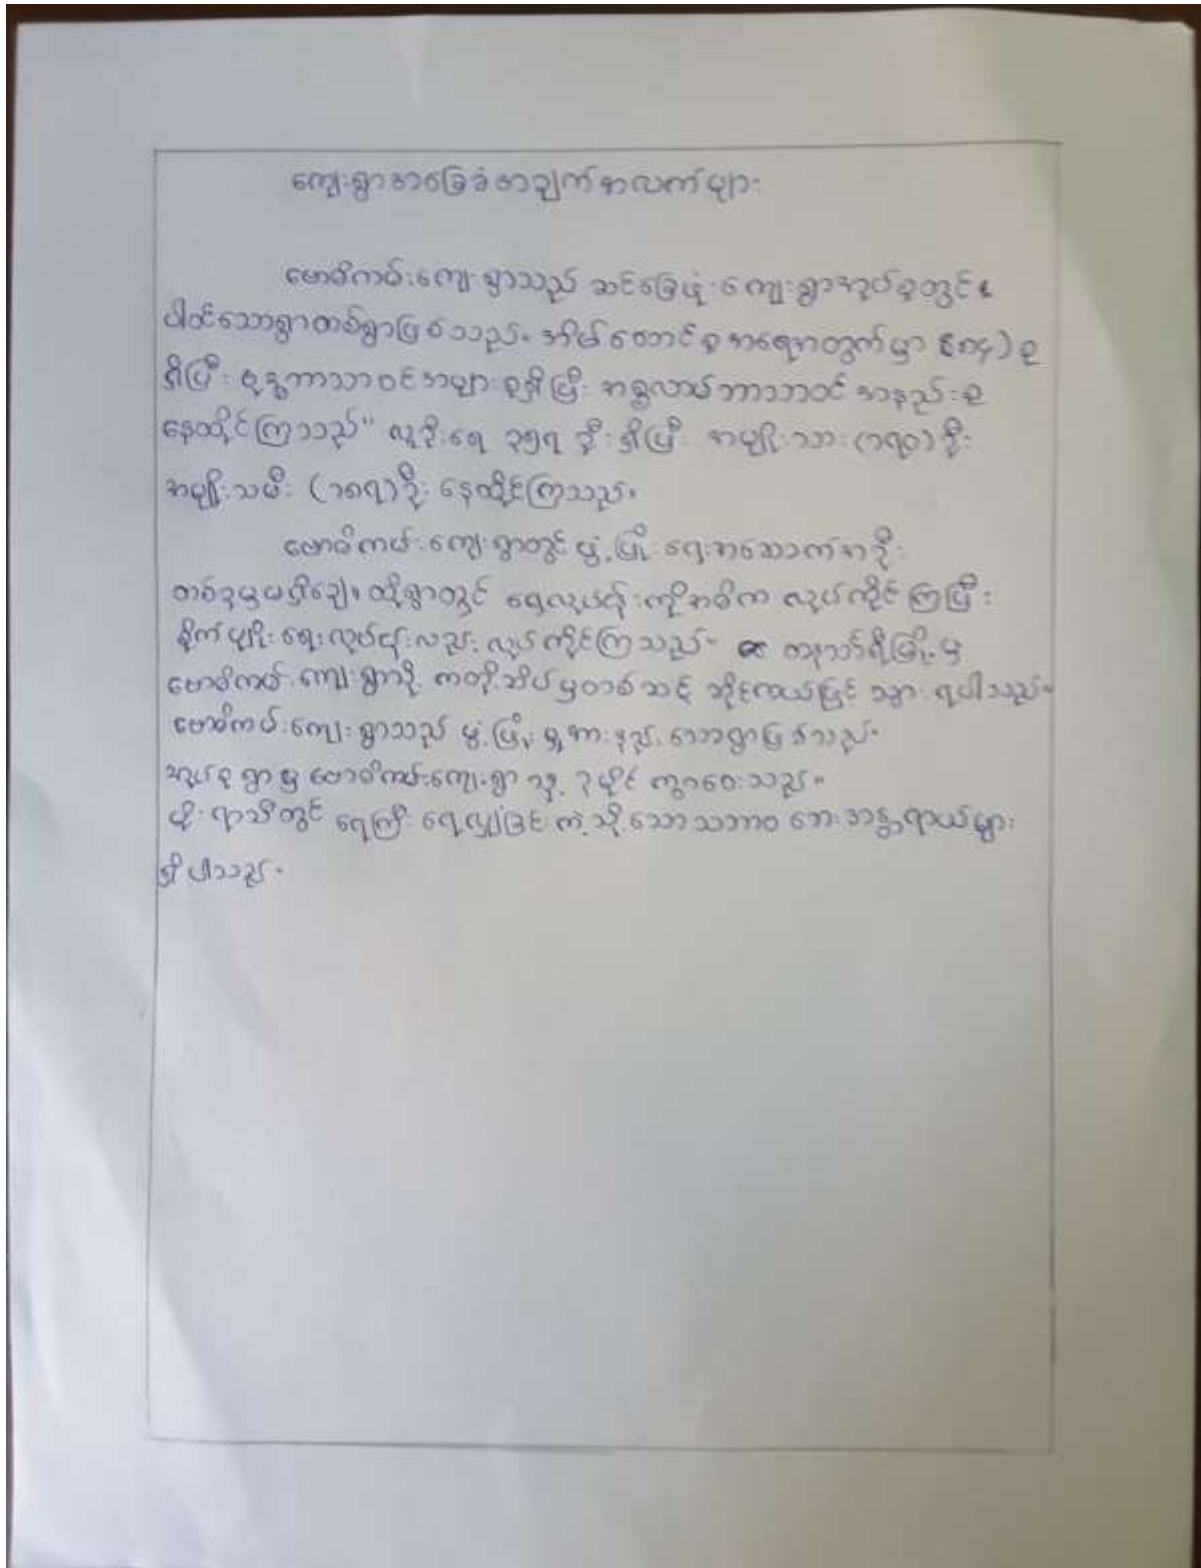 ကျေးရွာအခြေခံအချက်အလက်များ
မောဝိကမ်းကျေးရွာသည် ဆင်ခြေဖုံးကျေးရွာအုပ်စုတွင်
ပါဝင်သောရွာတစ်ရွာဖြစ်သည်။ အိမ်ထောင်စုအရေအတွက်မှာ (၈၄) စု
ရှိပြီး ဗုဒ္ဓဘာသာဝင်အများစုရှိပြီး အစ္စလာမ်ဘာသာဝင် အနည်းစု
နေထိုင်ကြသည်။ လူဦးရေ ၃၅၇ ဦးရှိပြီး အမျိုးသား (၁၇၀) ဦး
အမျိုးသမီး (၁၈၇) ဦး နေထိုင်ကြသည်။
မောဝိကမ်းကျေးရွာတွင် ဖွံ့ဖြိုးရေးအဆောက်အဦး
တစ်ခုမှမရှိချေ။ ထိုရွာတွင် ရေလုပ်ငန်းကိုအဓိက လုပ်ကိုင်ကြပြီး
စိုက်ပျိုးရေးလုပ်ငန်းလည်း လုပ်ကိုင်ကြသည်။ မြို့မှ
မောဝိကမ်းကျေးရွာသို့ ကတို့ဆိပ်မှတစ်ဆင့် ဆိုင်ကယ်ဖြင့် သွားရပါသည်။
မောဝိကမ်းကျေးရွာသည် ဖွံ့ဖြိုးမှုအားနည်းသောရွာဖြစ်သည်။
အုပ်စုရွာမှ မောဝိကမ်းကျေးရွာသို့ ၃မိုင် ကွာဝေးသည်။
မိုးရာသီတွင် ရေကြီးရေလျှံခြင်းကဲ့သို့သော သဘာဝ ဘေးအန္တရာယ်များ
ရှိပါသည်။